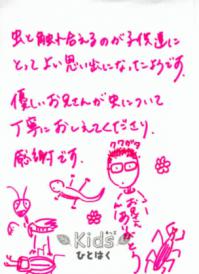 虫と触れ合えるのが子供達に
とってよい思い出になったようです。
優しいお兄さんが虫について
丁寧におしえてくださり、
感謝です。
クワガタ
お兄さん
ありがとう
Kids
ひとはく